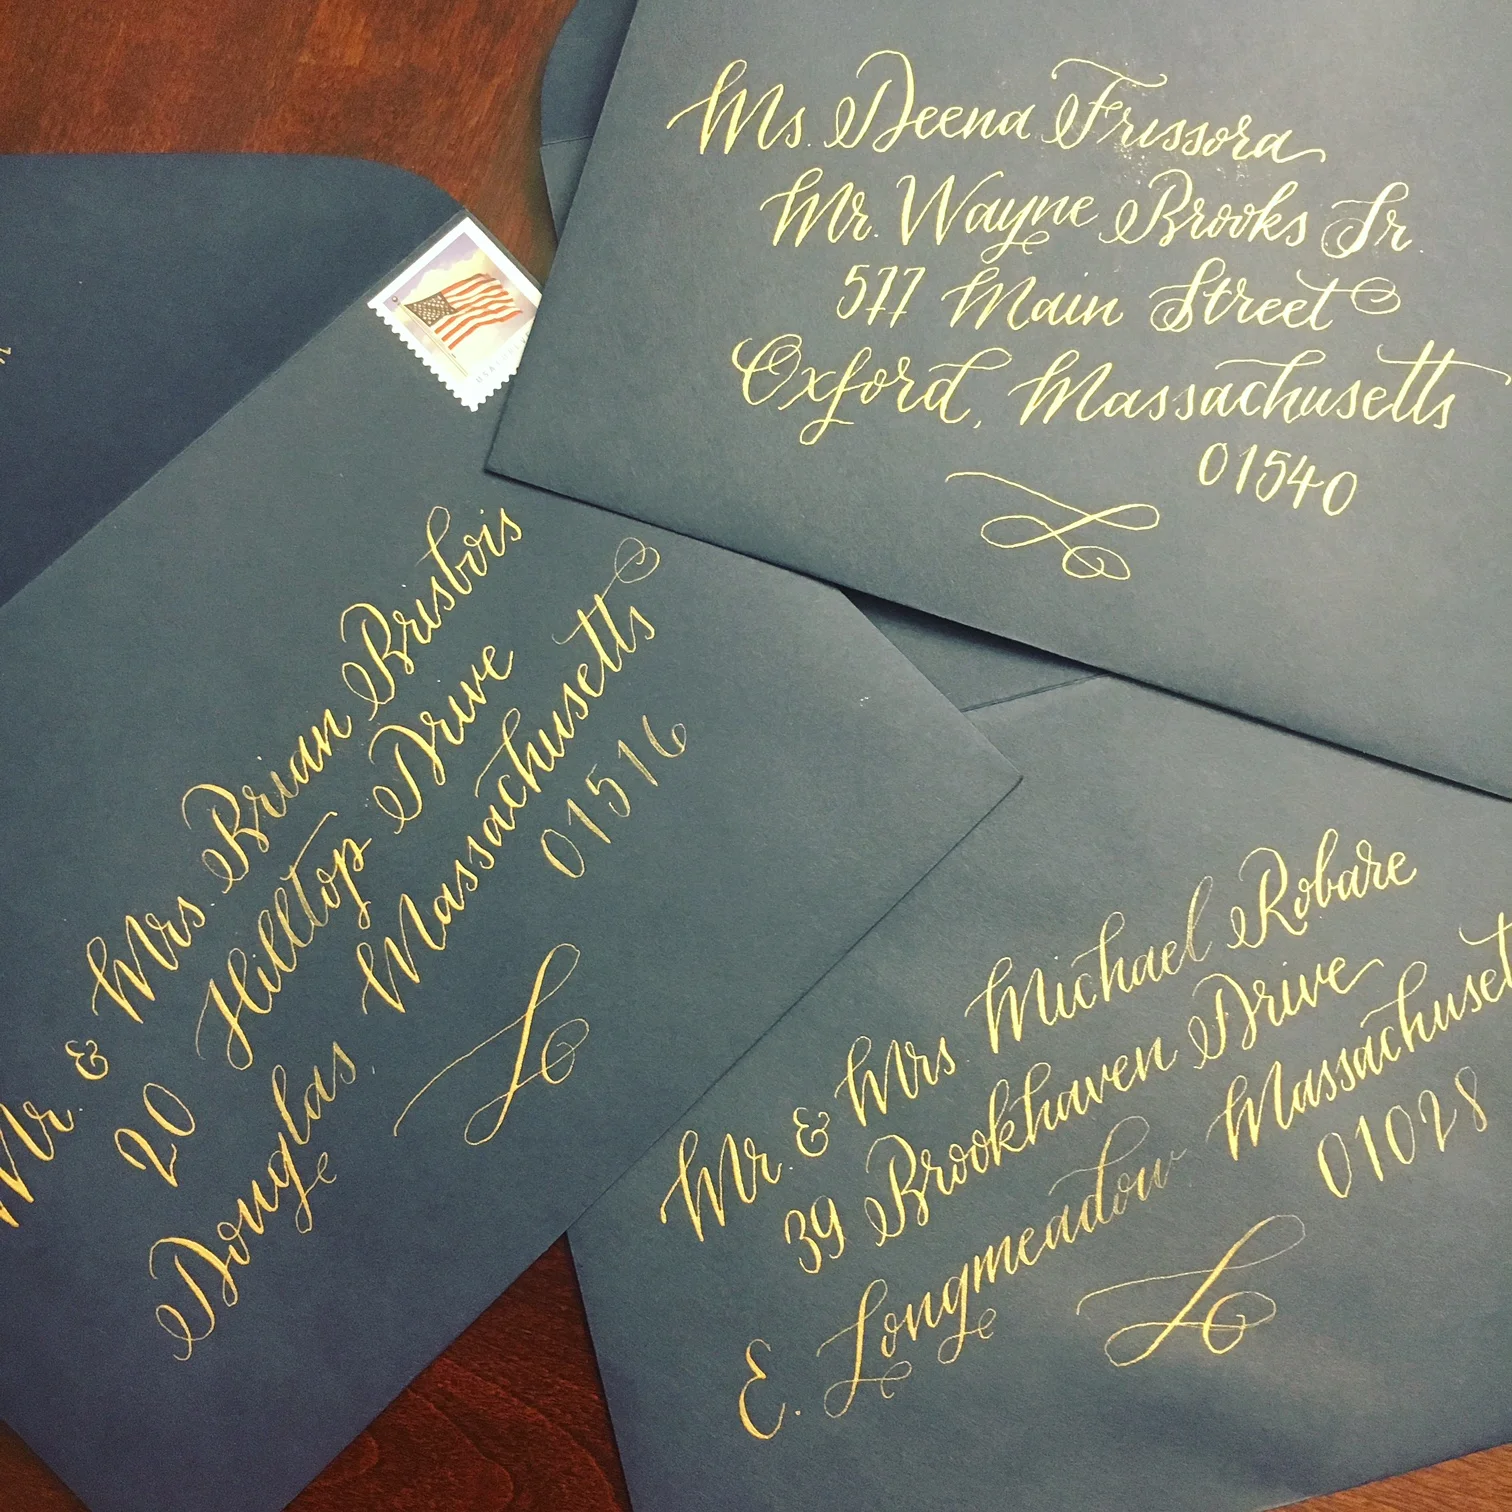 Ms. Deena Frissora
Mr. Wayne Brooks Jr.
577 Main Street
Oxford, Massachusetts
01540
Mr. & Mrs Brian Brisbois
20 Hilltop Drive
Douglas Massachusetts
01516
Mr. & Mrs Michael Robare
39 Brookhaven Drive
E. Longmeadow Massachuset
01028
USA